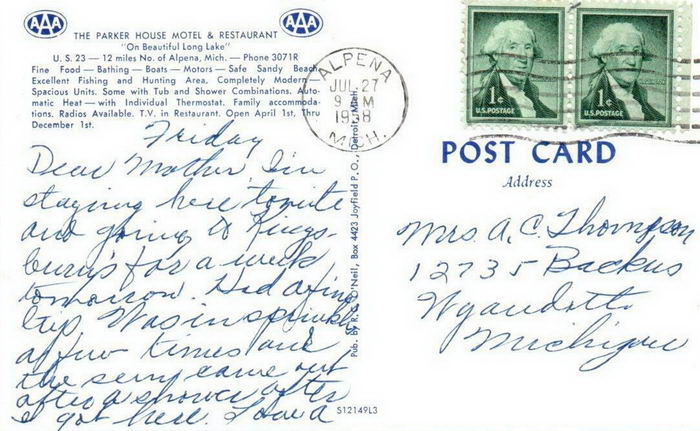 AAA
AAA
THE PARKER HOUSE MOTEL & RESTAURANT
"On Beautiful Long Lake"
U. S. 23 — 12 miles No. of Alpena, Mich. — Phone 3071R
Fine Food — Bathing — Boats — Motors — Safe Sandy Beach
Excellent Fishing and Hunting Area, Completely Modern
Spacious Units. Some with Tub and Shower Combinations. Auto-
matic Heat — with Individual Thermostat. Family accommoda-
tions. Radios Available. T.V. in Restaurant. Open April 1st, Thru
December 1st.
Friday
Dear Mother, I'm
staying here tonite
and going to Kings-
bury's for a week
tomorrow. Had a fine
trip. Was in sprinkles
a few times and
the sun came out
after a shower after
I got here.
Pub. by R. O'Neil, Box 4423 Joyfield P. O., Detroit, Mich.
S12149L3
ALPENA
JUL 27
9 M
1958
MICH.
1¢
U.S. POSTAGE
1¢
U.S. POSTAGE
POST CARD
Address
Mrs. A. C. Thompson
12735 Backus
Wyandotte
Michigan